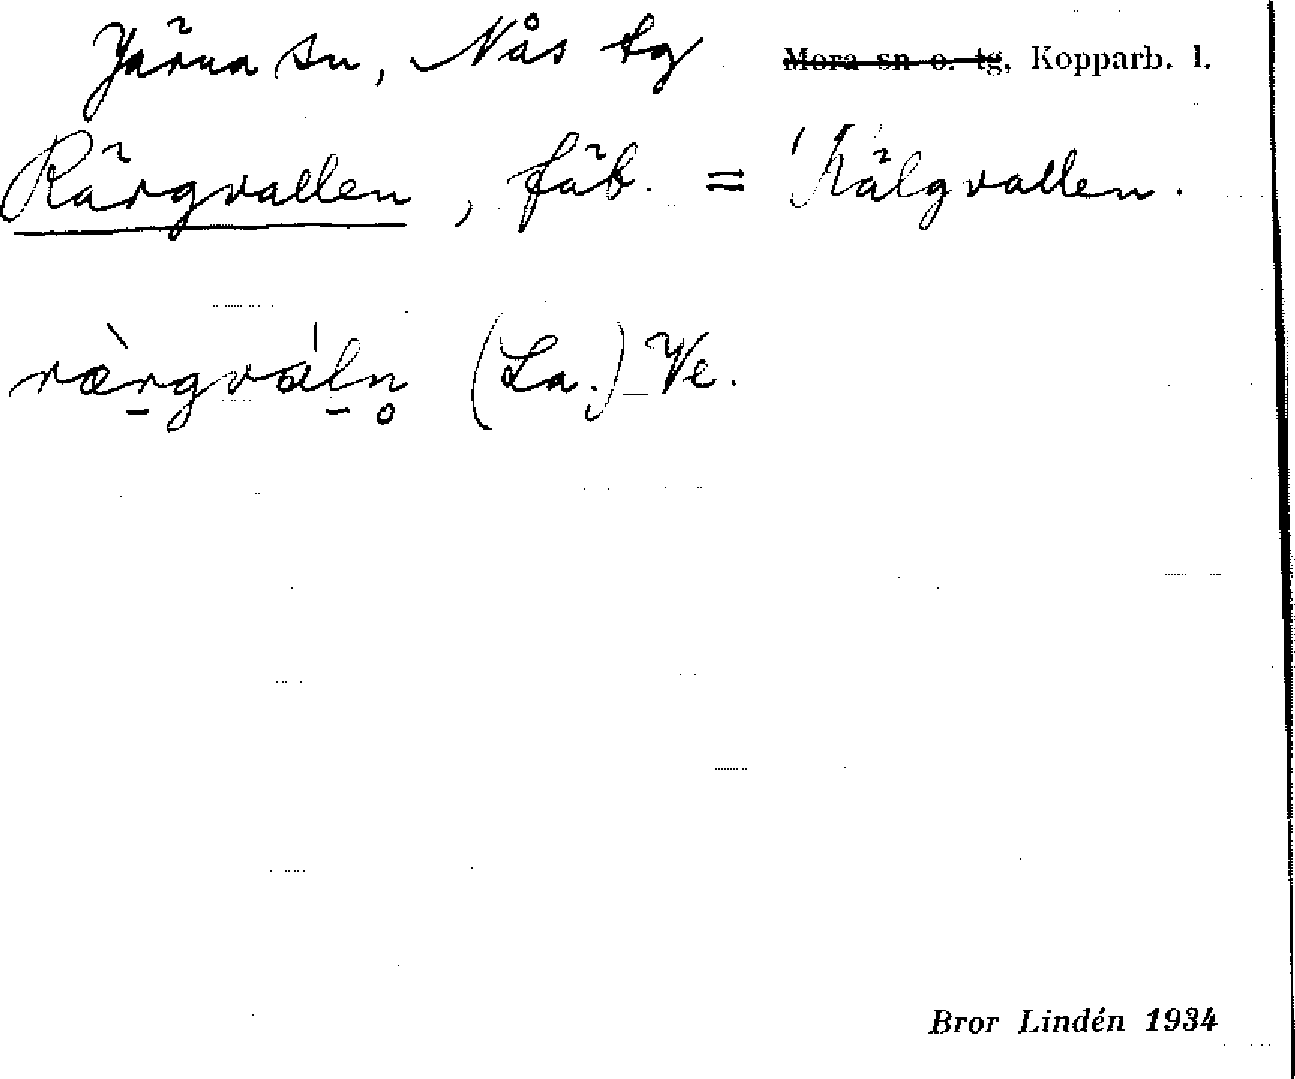 Järna sn, Nås tg ~~Mora sn o. tg~~, Kopparb. l.
Rärgvallen, fäb. = Kälgvallen.
rær̠gvàl̠n̥ (La.) Ve.
Bror Lindén 1934